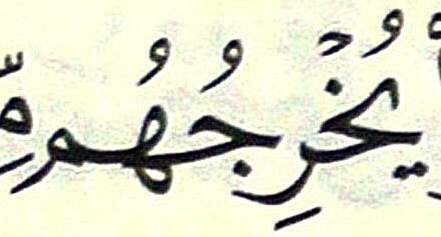 يُخْرِجُهُم